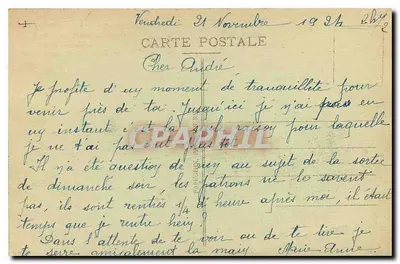 Vendredi 21 Novembre 1924
CARTE POSTALE
Cher André
Je profite d'un moment de tranquillité pour
venir près de toi. Jusqu'ici je n'ai pas eu
un instant c'est la raison pour laquelle
je ne t'ai pas plus tôt.
Il n'a été question de rien au sujet de la sortie
de dimanche soir, les patrons ne le savent
pas, ils sont rentrés 1/4 d'heure après moi, il était
temps que je rentre hein.
Dans l'attente de te voir ou de te lire je
te serre amicalement la main Marie Anne